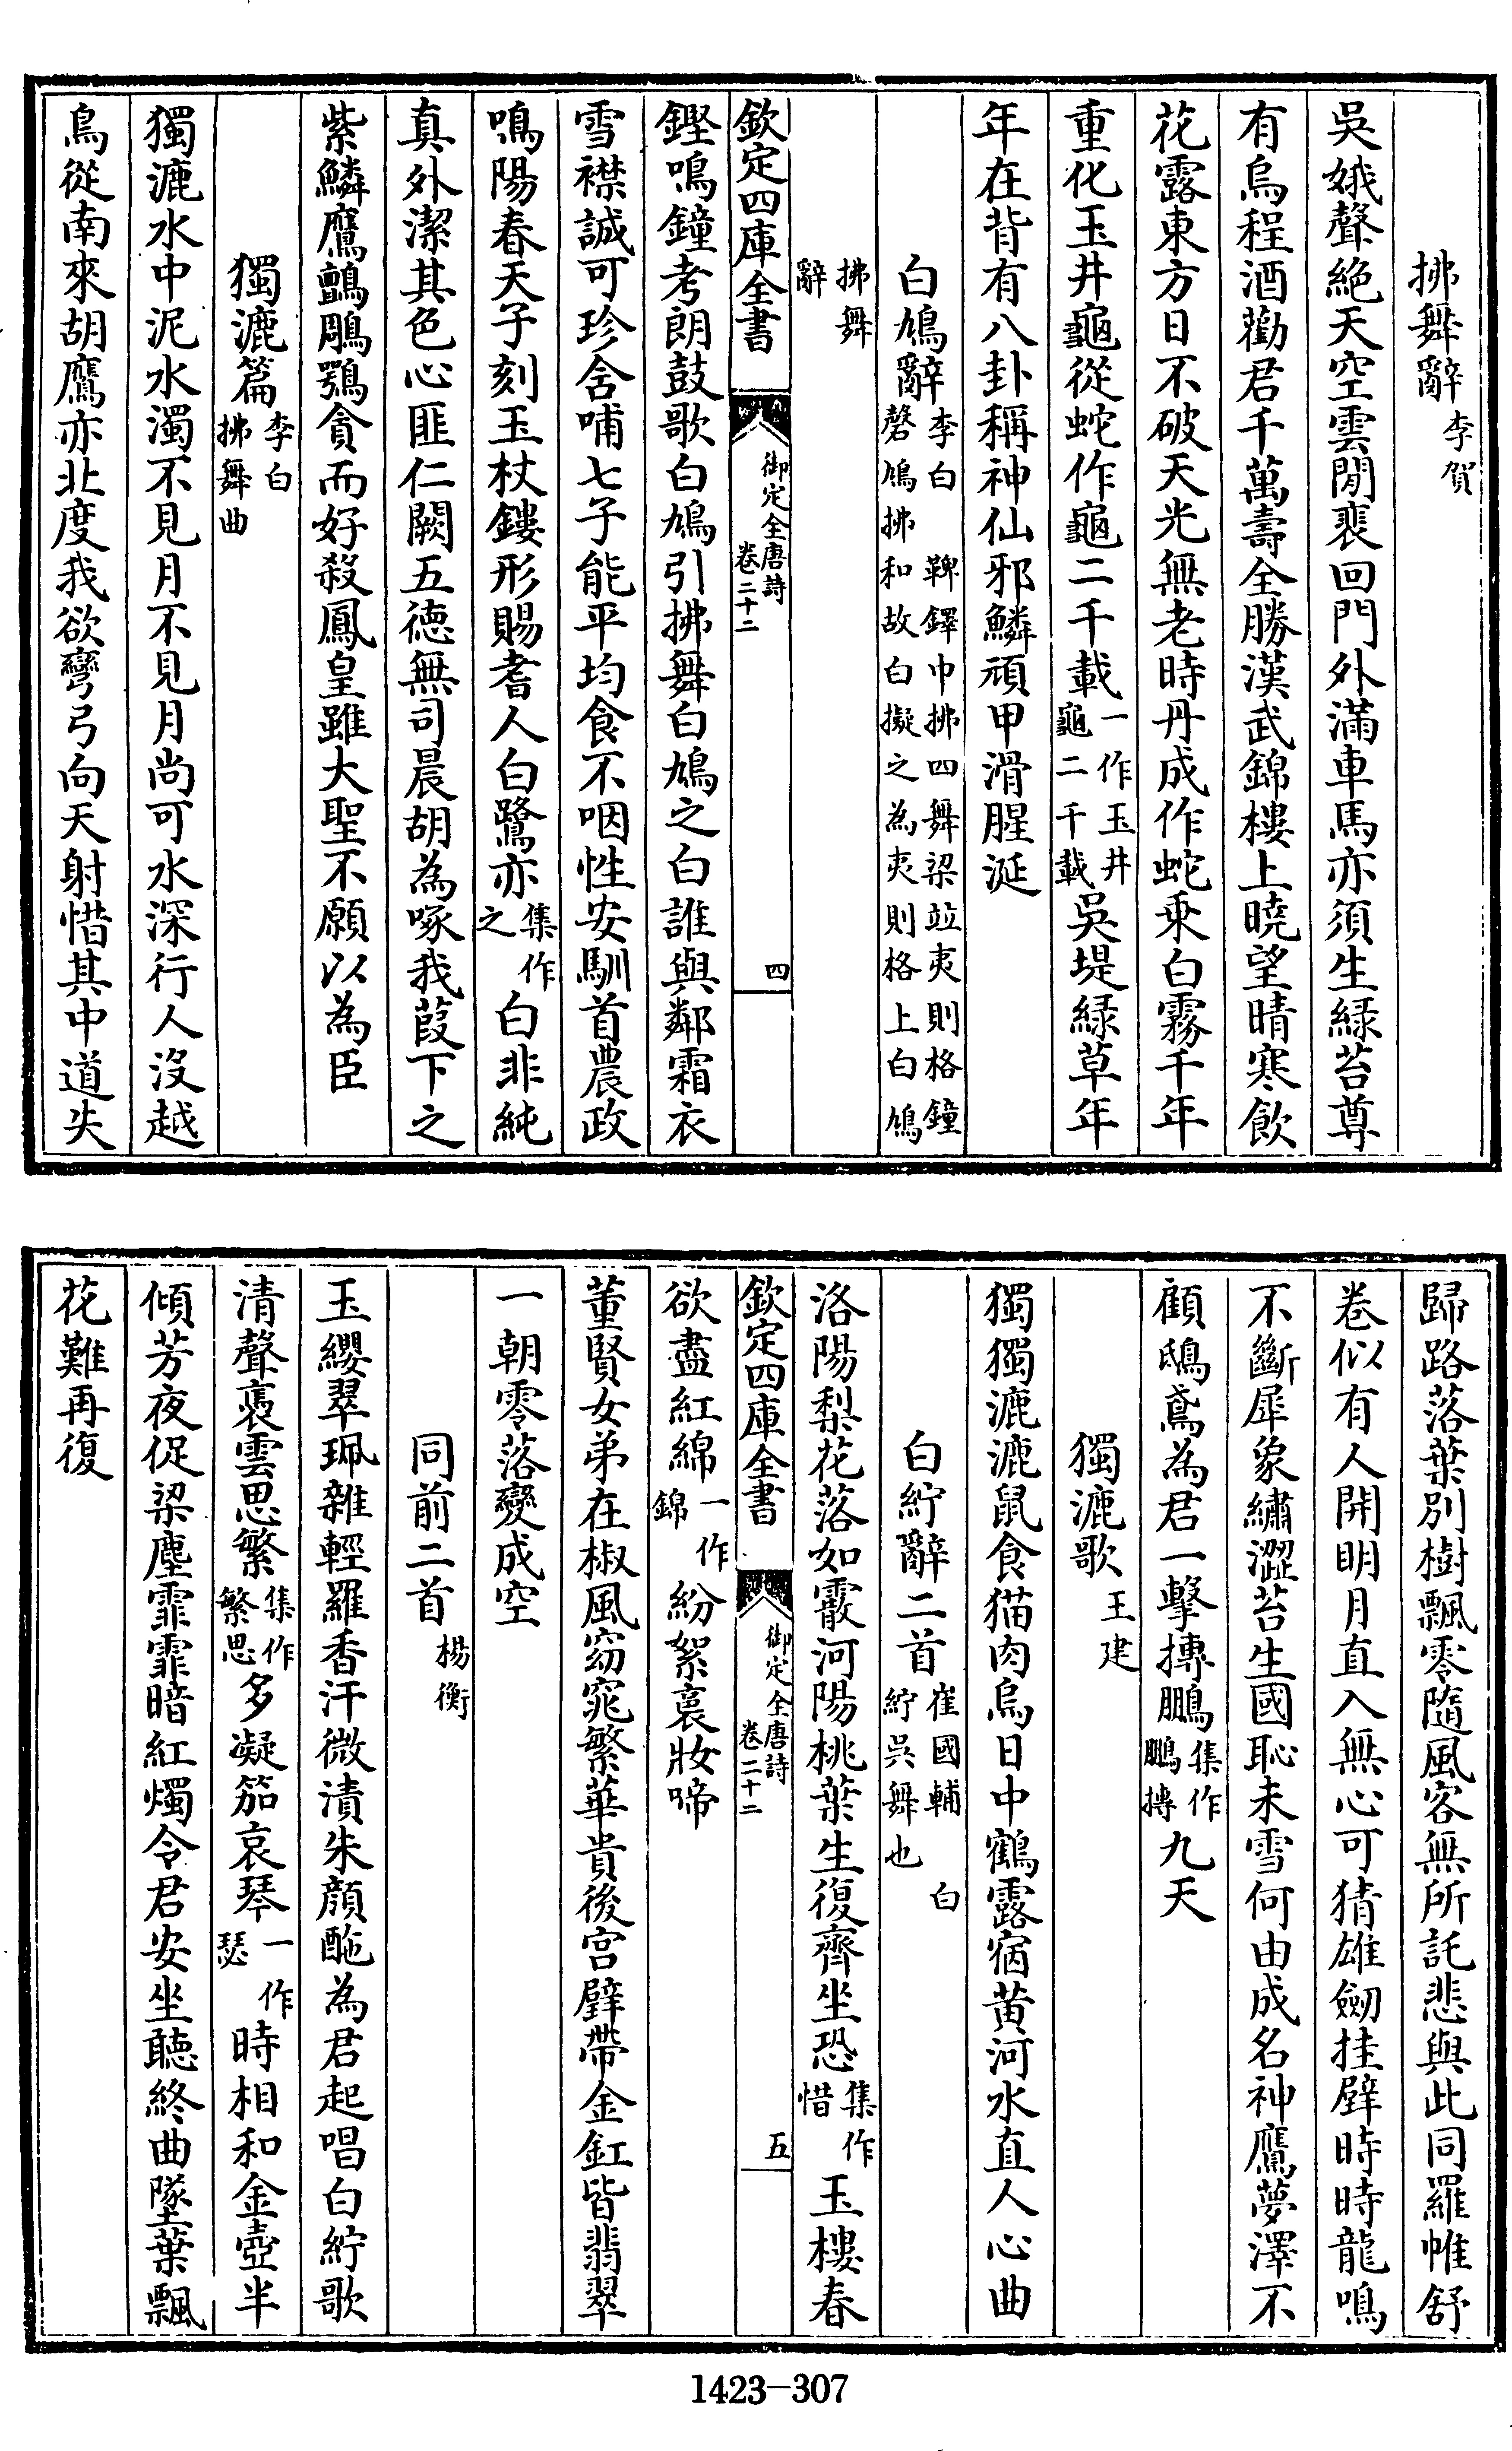 拂舞辭李賀
吳娥聲絶天空雲閒裵回門外滿車馬亦須生緑苔尊
有烏程酒勸君千萬壽全勝漢武錦樓上曉望晴寒飲
花露東方日不破天光無老時丹成作蛇乘白霧千年
重化玉井龜從蛇作龜二千載一作玉井龜二千載吳堤緑草年
年在背有八卦稱神仙邪鱗頑甲滑腥涎
白鳩辭李白　鞞鐸巾拂四舞梁竝夷則格鐘磬鳩拂和故白擬之為夷則格上白鳩
拂舞辭
欽定四庫全書　御定全唐詩卷二十二　四
鏗鳴鐘考朗鼓歌白鳩引拂舞白鳩之白誰與鄰霜衣
雪襟誠可珍含哺七子能平均食不咽性安馴首農政
鳴陽春天子刻玉杖鏤形賜耆人白鷺亦集作之白非純
真外潔其色心匪仁闕五德無司晨胡為啄我葭下之
紫鱗鷹鸇鵰鶚貪而好殺鳳皇雖大聖不願以為臣
獨漉篇李白拂舞曲
獨漉水中泥水濁不見月不見月尚可水深行人沒越
鳥從南來胡鷹亦北度我欲彎弓向天射惜其中道失
歸路落葉別樹飄零隨風客無所託悲與此同羅帷舒
卷似有人開明月直入無心可猜雄劒挂壁時時龍鳴
不斷犀象繡澀苔生國恥未雪何由成名神鷹夢澤不
顧鴟鳶為君一擊摶鵬集作鵬摶九天
獨漉歌王建
獨獨漉漉鼠食猫肉烏日中鶴露宿黃河水直人心曲
白紵辭二首崔國輔　白紵吳舞也
洛陽梨花落如霰河陽桃葉生復齊坐恐集作惜玉樓春
欽定四庫全書　御定全唐詩卷二十二　五
欲盡紅綿一作錦紛絮裛妝啼
董賢女弟在椒風窈窕繁華貴後宮壁帶金釭皆翡翠
一朝零落變成空
同前二首楊衡
玉纓翠珮雜輕羅香汗微漬朱顏酡為君起唱白紵歌
清聲裊雲思繁集作繁思多凝笳哀琴一作瑟時相和金壺半
傾芳夜促梁塵霏霏暗紅燭令君安坐聽終曲墜葉飄
花難再復
1423-307